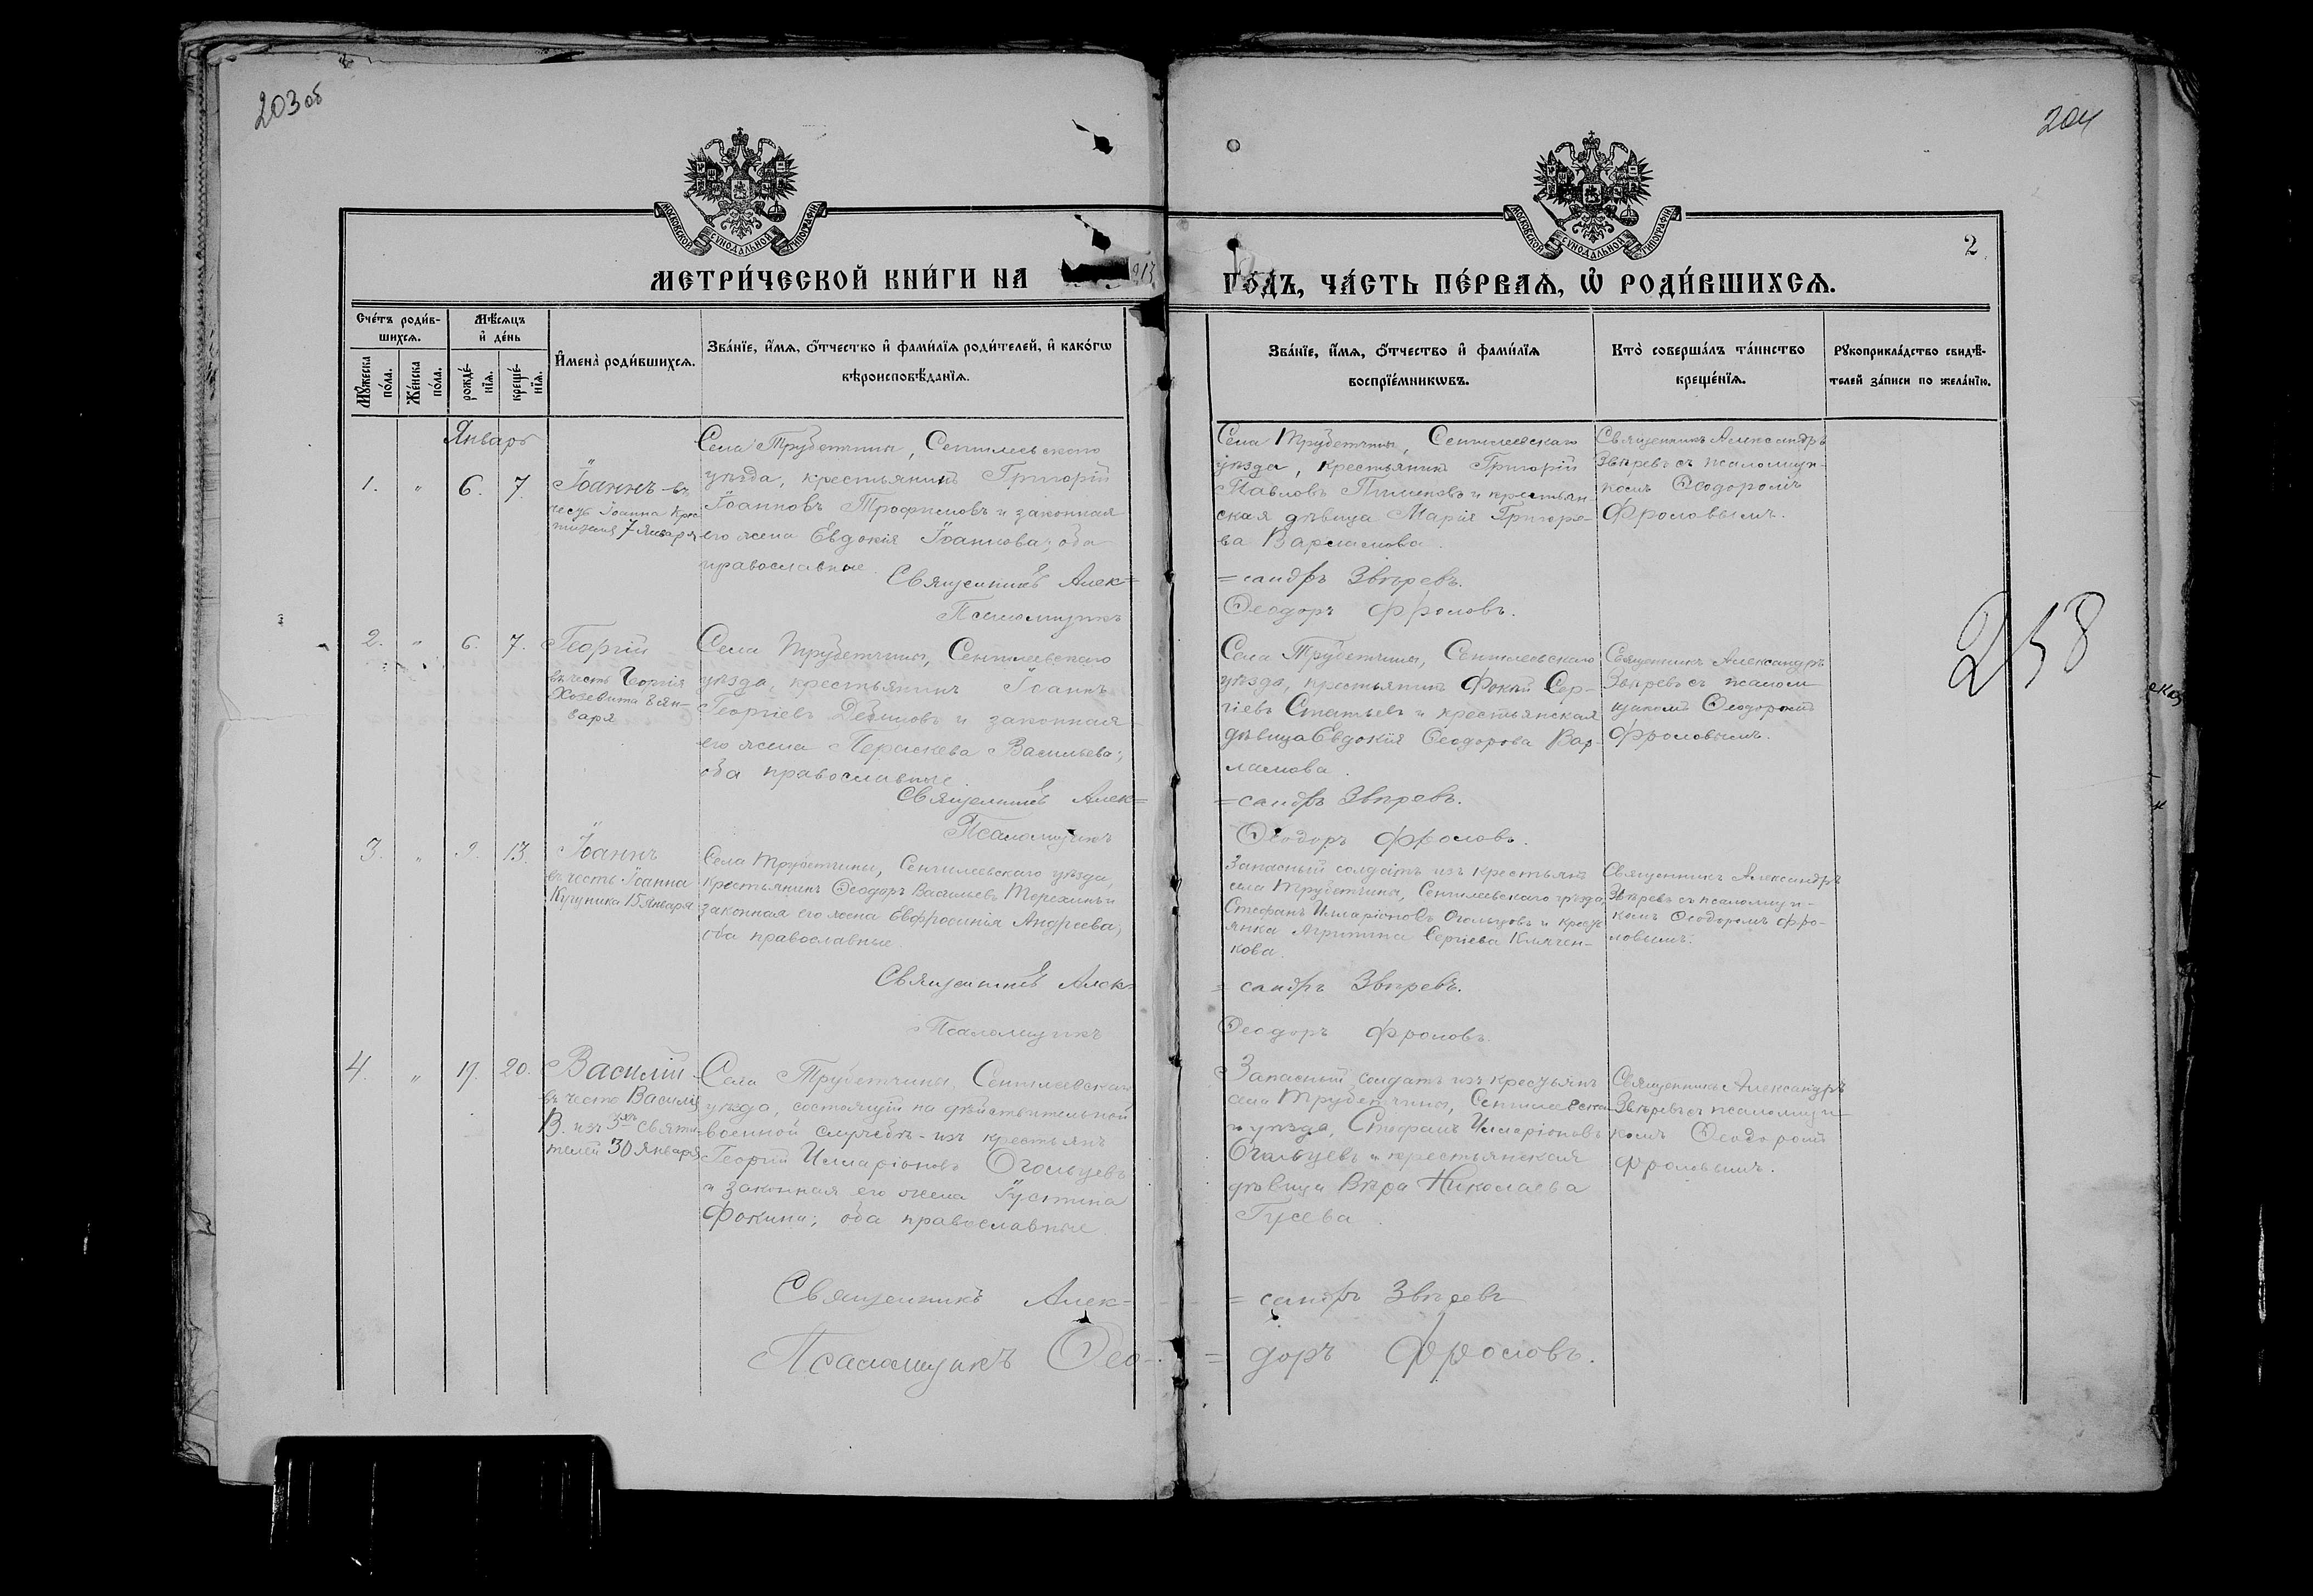 203 об
204
МОСКОВСКОЙ СѴНОДАЛЬНОЙ ТИПОГРАФІИ
МОСКОВСКОЙ СѴНОДАЛЬНОЙ ТИПОГРАФІИ
2
МЕТРИ́ЧЕСКОЙ КНИ́ГИ НА 913
ГО́ДЪ, ЧА́СТЬ ПЕ́РВАЯ, Ѡ҆ РОДИ́ВШИХСЯ.
Сче́тъ роди́в-
шихся.
Мѣ́сяцъ
и҆ де́нь
Мꙋ́жеска по́ла.
Же́нска по́ла.
рожде́-
нїя.
креще́-
нїя.
И҆мена̀ роди́вшихся.
Зва́нїе, и҆́мя, ѻ҆́тчество и҆ фами́лїя роди́телей, и҆ како́гѡ
вѣроисповѣ́данїя.
Зва́нїе, и҆́мя, ѻ҆́тчество и҆ фами́лїя
воспрїе́мникѡвъ.
Кто̀ соверша́лъ та́инство
креще́нїя.
Рꙋкоприкла́дство свидѣ́-
телей за́писи по жела́нїю.
Январь
1. " 6. 7.
Іоаннъ - въ
честь Іоанна Крес
тителя 7 Января
Села Трубетчины, Сенгилеевскаго
уѣзда, крестьянинъ Григорій
Іоанновъ Трофимовъ и законная
его жена Евдокія Іоаннова; оба
православные.
Священникъ Алек=
Псаломщикъ
Села Трубетчины, Сенгилеевскаго
уѣзда, крестьянинъ Григорій
Павловъ Пименовъ и крестьян-
ская дѣвица Марія Григорье-
ва Варламова.
=сандръ Звѣревъ.
Ѳеодоръ Фроловъ.
Священникъ Александръ
Звѣревъ съ псаломщи-
комъ Ѳеодоромъ
Фроловымъ.
2. " 6. 7.
Георгій
въ честь Георгія
Хозевита 8 Ян-
варя
Села Трубетчины, Сенгилеевскаго
уѣзда, крестьянинъ Іоаннъ
Георгіевъ и законная
его жена Параскева Васильева;
оба православные.
Священникъ Алек=
Псаломщикъ
Села Трубетчины, Сенгилеевскаго
уѣзда, крестьянинъ Фокий Сер-
гіевъ Статьевъ и крестьянская
дѣвица Евдокія Ѳеодорова Вар-
ламова.
=сандръ Звѣревъ.
Ѳеодоръ Фроловъ.
Священникъ Александръ
Звѣревъ съ псалом
щикомъ Ѳеодоромъ
Фроловымъ.
258
3. " 9. 13.
Іоаннъ
въ честь Іоанна
Кущника 15 Января
Села Трубетчины, Сенгилеевскаго уѣзда,
крестьянинъ Ѳеодоръ Васильевъ Терехинъ и
законная его жена Евфросинія Андреева;
оба православные.
Священникъ Алек=
Псаломщикъ
Запасный солдатъ изъ крестьянъ
села Трубетчины, Сенгилеевскаго уѣзда,
Стефанъ Илларіоновъ Огольцовъ и крест
янка Агрипина Сергіева Клячен-
кова.
=сандръ Звѣревъ.
Ѳеодоръ Фроловъ.
Священникъ Александръ
Звѣревъ съ псаломщи-
комъ Ѳеодоромъ Фро-
ловымъ.
4. " 17. 20.
Василій
въ честь Василія
В. изъ 3хъ святи-
телей 30 Января
Села Трубетчины, Сенгилеевскаго
уѣзда, состоящій на дѣйствительной
военной службѣ - изъ крестьянъ
Георгій Илларіоновъ Огольцевъ
и законная его жена Іустина
Фокина; оба православные.
Священникъ Алек=
Псаломщикъ Ѳео-
Запасный солдатъ изъ крестьянъ
села Трубетчины, Сенгилеевска
го уѣзда, Стефанъ Илларіоновъ
Огольцевъ и крестьянская
дѣвица Вѣра Николаева
Гусева.
=сандръ Звѣревъ
=доръ Фроловъ.
Священникъ Александръ
Звѣревъ съ псаломщи-
комъ Ѳеодоромъ
Фроловымъ.